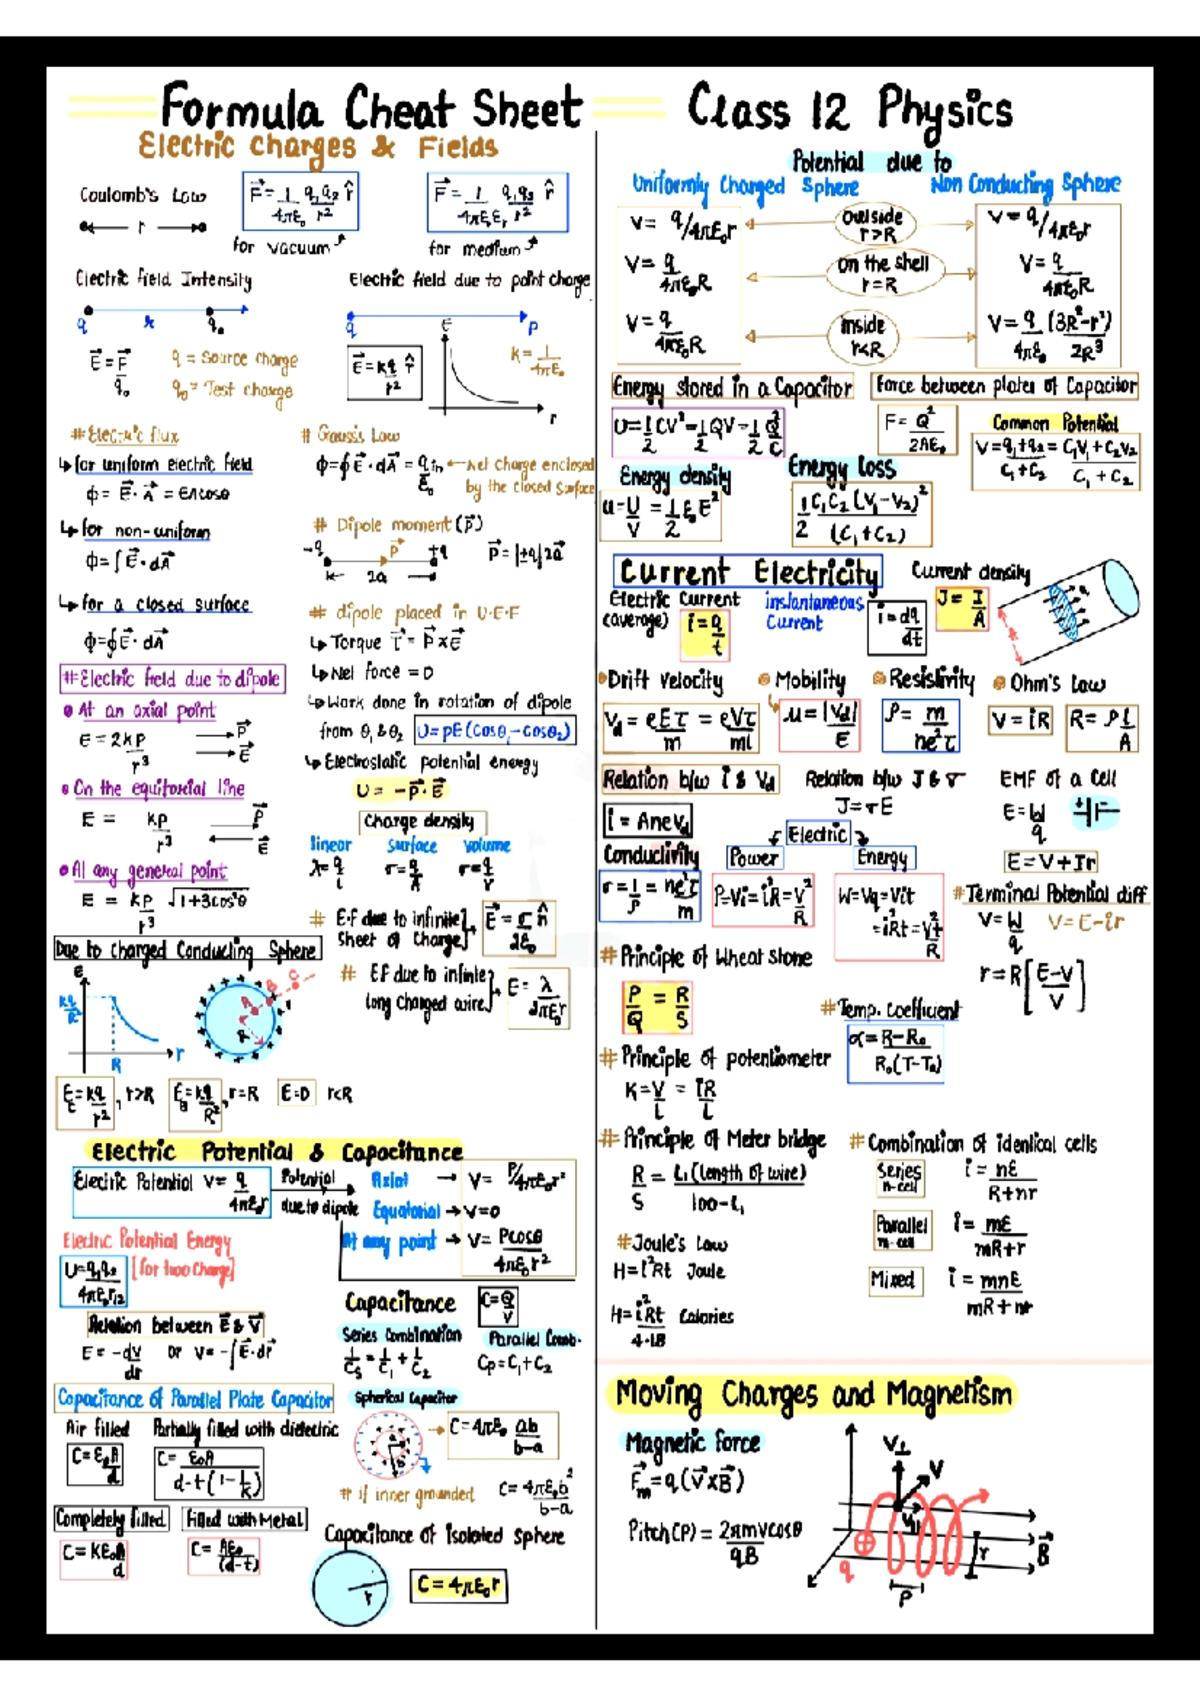 Formula Cheat Sheet Class 12 Physics
Electric Charges & Fields
Coulomb's Law
F⃗ = 1/4πε₀ q₁q₂/r² r̂
for vacuum
F⃗ = 1/4πε₀εᵣ q₁q₂/r² r̂
for medium
r
Electric field Intensity
q x q₀
E⃗ = F⃗/q₀
q = Source charge
q₀ = Test charge
Electric field due to point charge
q P
E⃗ = kq/r² r̂
E
r
K = 1/4πε₀
# Electric flux
↳ for uniform electric field
ϕ = E⃗ · A⃗ = EAcosθ
↳ for non-uniform
ϕ = ∫E⃗ · dA⃗
↳ for a closed surface
ϕ = ∮E⃗ · dA⃗
# Gauss's Law
ϕ = ∮E⃗ · dA⃗ = qin/ε₀ ← Net Charge enclosed
by the closed surface
# Dipole moment (p⃗)
-q P⃗ +q
2a
P⃗ = |±q|2a⃗
# dipole placed in U·E·F
↳ Torque τ⃗ = P⃗ x E⃗
↳ Net force = 0
↳ Work done in rotation of dipole
from θ₁ & θ₂ U = pE(Cosθ₁ - cosθ₂)
↳ Electrostatic potential energy
U = -P⃗ · E⃗
# Electric field due to dipole
At an axial point
E = 2kp/r³
P⃗
E⃗
On the equitorial line
E = kp/r³
P⃗
E⃗
At any general point
E = kp/r³ √1+3cos²θ
Charge density
linear Surface Volume
λ = q/L σ = q/A σ = q/V
# E·F due to infinite Sheet of Charge → E⃗ = σ/2ε₀ n̂
# E.F due to infinite long charged wire → E = λ/2πε₀r
Due to charged Conducting Sphere
E
kq/R²
R
r
R
B
C
E = kq/r², r>R E = kq/R², r=R E=0 r<R
Electric Potential & Capacitance
Electric Potential V = q/4πε₀r
Potential due to dipole
Axial → V = P/4πε₀r²
Equatorial → V=0
At any point → V = Pcosθ/4πε₀r²
Electric Potential Energy
U = q₁q₂/4πε₀r₁₂ [for two Charge]
Relation between E⃗ & V⃗
E = -dV/dr or V = -∫E⃗·dr⃗
Capacitance C = Q/V
Series Combination
1/Cs = 1/C₁ + 1/C₂
Parallel Comb.
Cp = C₁ + C₂
Capacitance of Parallel Plate Capacitor
Air filled
C = ε₀A/d
Partially filled with dielectric
C = ε₀A/d-t(1-1/K)
Completely filled
C = Kε₀A/d
Filled with Metal
C = Aε₀/(d-t)
Spherical Capacitor
a
b
C = 4πε₀ ab/b-a
# if inner grounded C = 4πε₀b²/b-a
Capacitance of Isolated Sphere
r
C = 4πε₀r
Potential due to
Uniformly Charged Sphere Non Conducting Sphere
V = q/4πε₀r outside r>R V = q/4πε₀r
V = q/4πε₀R on the shell r=R V = q/4πε₀R
V = q/4πε₀R inside r<R V = q/4πε₀ (3R²-r²)/2R³
Energy stored in a Capacitor
U = 1/2 CV² = 1/2 QV = 1/2 Q²/C
Force between plates of Capacitor
F = Q²/2Aε₀
Common Potential
V = q₁+q₂/C₁+C₂ = C₁V₁+C₂V₂/C₁+C₂
Energy density
u = U/V = 1/2 ε₀E²
Energy loss
1/2 C₁C₂(V₁-V₂)²/(C₁+C₂)
Current Electricity
Electric Current
(average) i = q/t
instantaneous
Current i = dq/dt
Current density
J = I/A
Drift Velocity
Vd = eEτ/m = eVτ/ml
Mobility
μ = |Vd|/E
Resistivity
ρ = m/ne²τ
Ohm's Law
V = iR R = ρl/A
Relation b/w i & Vd
i = AneVd
Relation b/w J & σ
J = σE
EMF of a Cell
E = W/q
E = V+Ir
Conductivity
σ = 1/ρ = ne²τ/m
Electric
Power
P=Vi=i²R=V²/R
Energy
W=Vq=Vit
=i²Rt=V²t/R
# Terminal Potential diff
V = W/q V = E-ir
r = R[E-V/V]
# Principle of Wheat Stone
P/Q = R/S
# Temp. Coefficient
α = R-R₀/R₀(T-T₀)
# Principle of potentiometer
K = V/L = IR/L
# Principle of Meter bridge
R/S = L₁(length of wire)/100-L₁
# Combination of identical cells
Series n-cell i = nE/R+nr
Parallel m-cell i = mE/mR+r
Mixed i = mnE/mR+nr
# Joule's Law
H=I²Rt Joule
H=i²Rt/4.18 Calories
Moving Charges and Magnetism
Magnetic force
F⃗m = q(V⃗xB⃗)
Pitch(P) = 2πmvcosθ/qB
V⊥
V
V||
q
P
r
B⃗